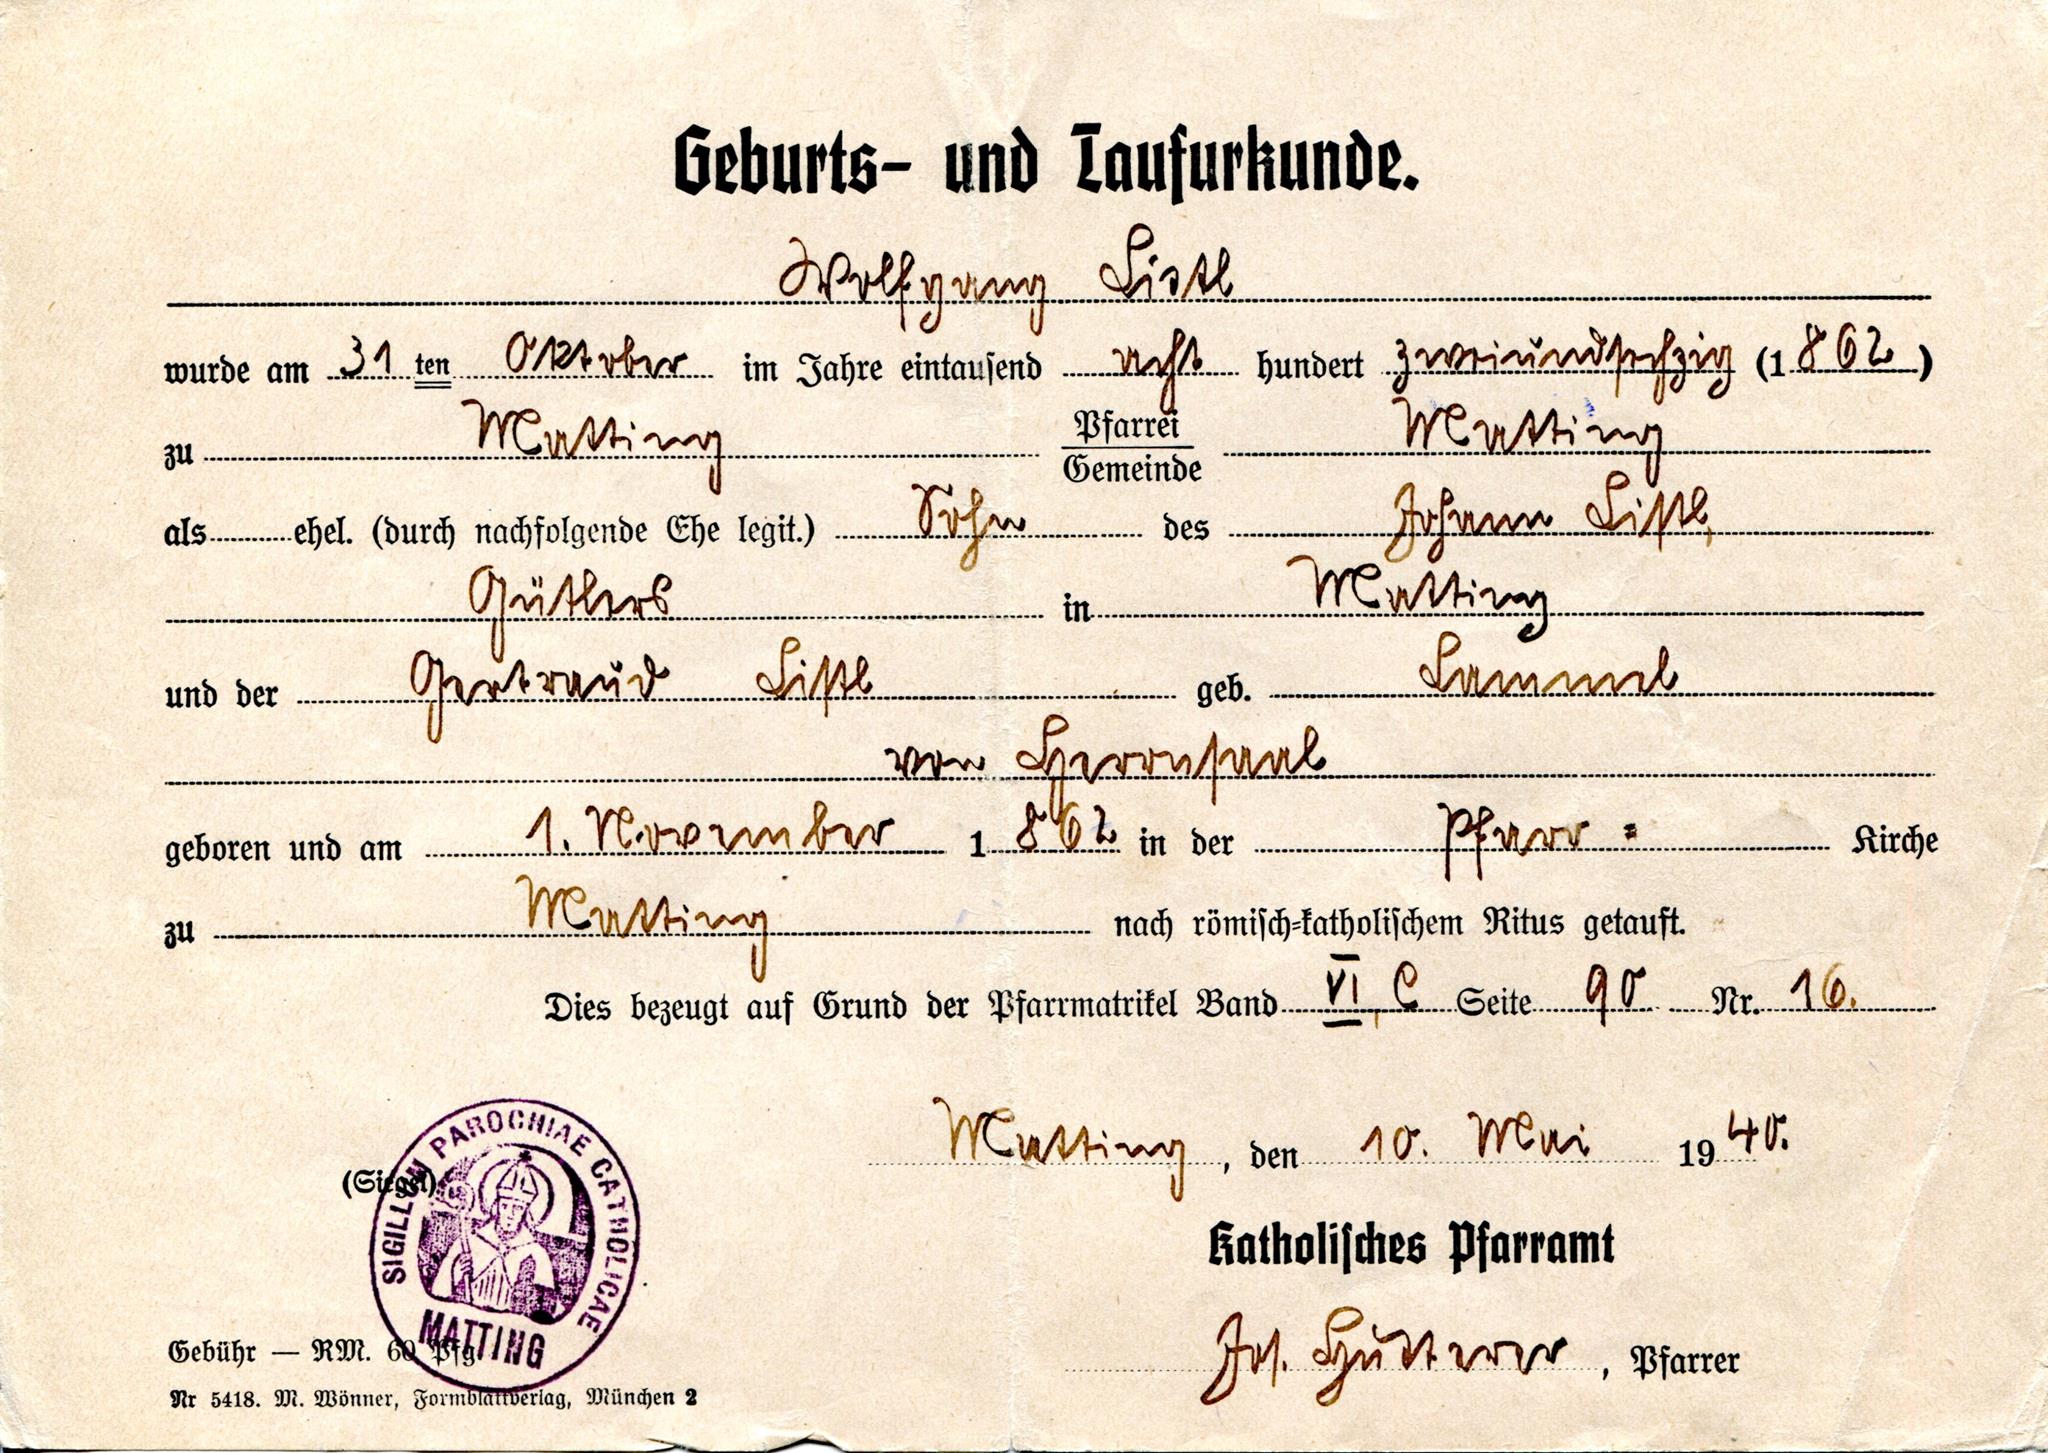 Geburts- und Taufurkunde.
Wolfgang Listl
wurde am 31 ten Oktober im Jahre eintausend acht hundert zweiundsechzig (1862)
zu Matting Pfarrei Matting
Gemeinde
als ehel. (durch nachfolgende Ehe legit.) Sohn des Johann Listl,
Gütlers in Matting
und der Gertraud Listl geb. Lammel
von Herrnsaal
geboren und am 1. November 1862 in der Pfarr= Kirche
zu Matting nach römisch-katholischem Ritus getauft.
Dies bezeugt auf Grund der Pfarrmatrikel Band VI, C Seite 90 Nr. 16.
Matting, den 10. Mai 1940.
(Siegel)
SIGILLUM PAROCHIAE CATHOLICAE
MATTING
Katholisches Pfarramt
Jos. Hutterer, Pfarrer
Gebühr — RM. 60 Pfg
Nr 5418. M. Wönner, Formblattverlag, München 2